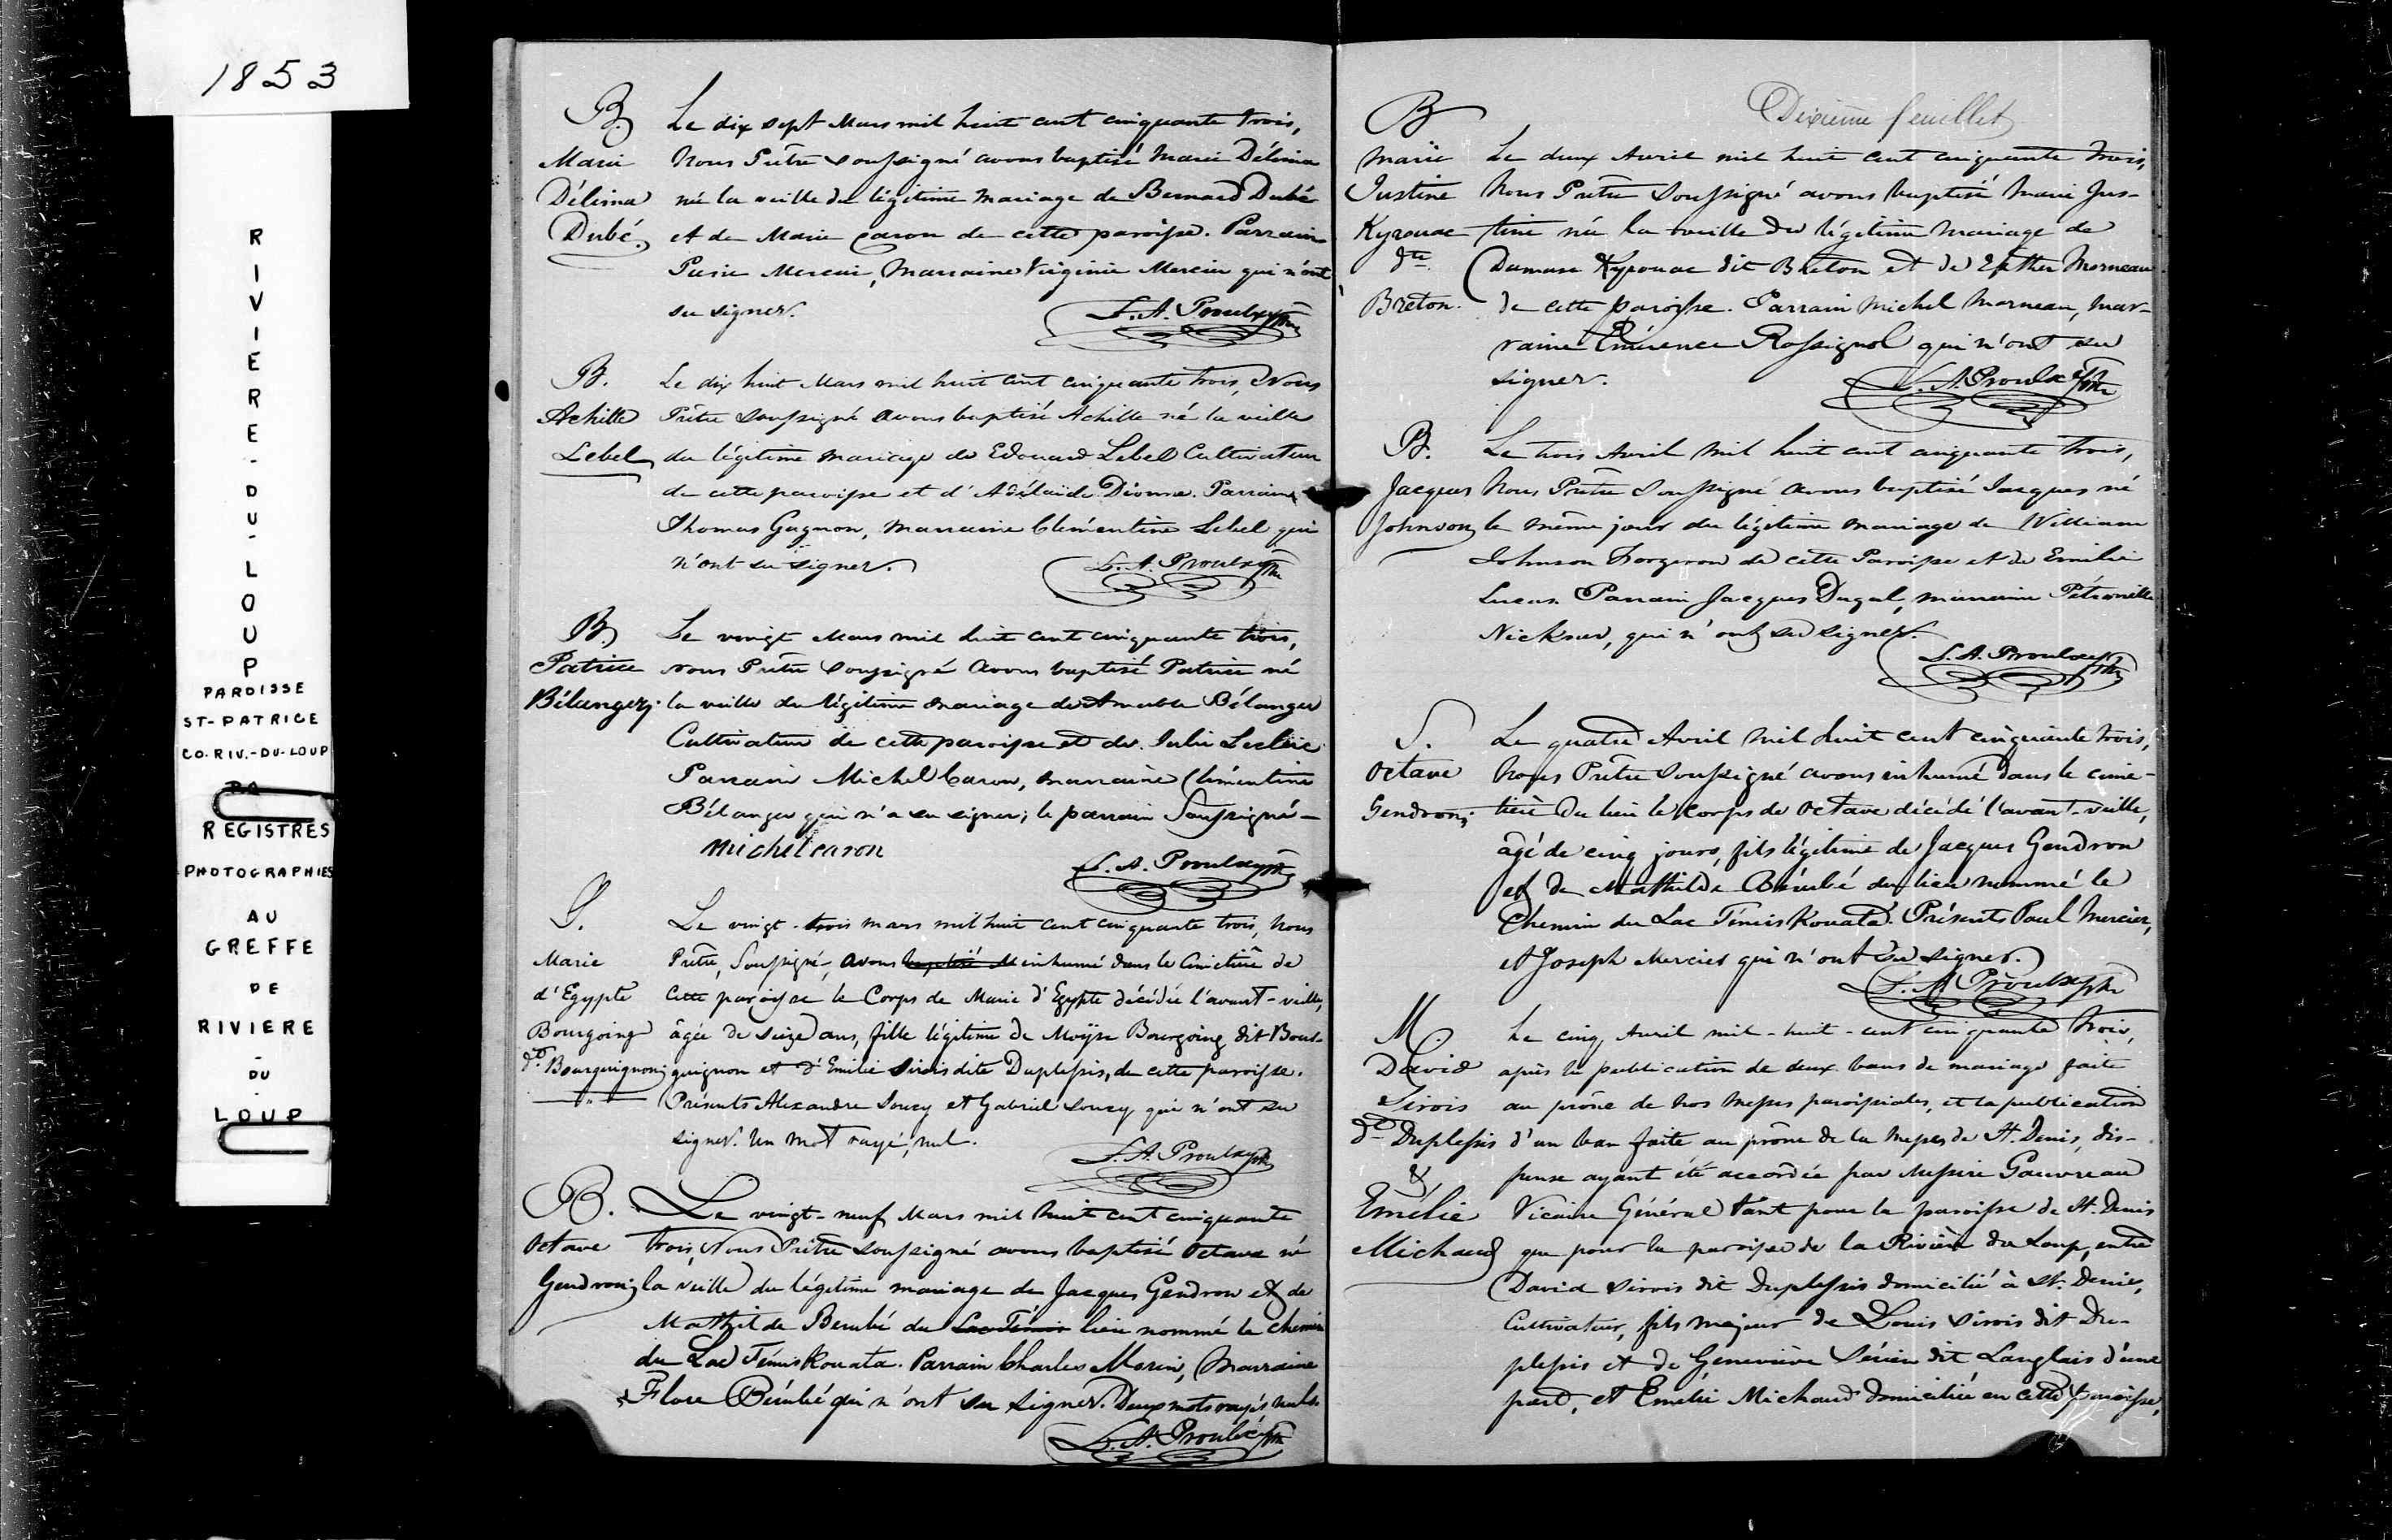 1853
RIVIERE-DU-LOUP
PAROISSE
ST-PATRICE
CO. RIV.-DU-LOUP
REGISTRES
PHOTOGRAPHIES
AU
GREFFE
DE
RIVIERE
-
DU
-
LOUP
B.
Marie
Délima
Dubé.
Le dix sept Mars mil huit cent cinquante trois,
Nous Prêtre soussigné avons baptisé Marie Délima
née la veille du légitime mariage de Bernard Dubé
et de Marie Caron de cette paroisse. Parrain
Mercier, Marraine Virginie Mercier qui n'ont
su signer.
L. A. Proulx Ptre
B.
Achille
Lebel
Le dix huit Mars mil huit cent cinquante trois, Nous
Prêtre soussigné avons baptisé Achille né la veille
du légitime mariage de Edouard Lebel Cultivateur
de cette paroisse et d'Adélaïde Dionne. Parrain
Thomas Gagnon, marraine Clémentine Lebel qui
n'ont su signer.
L. A. Proulx Ptre
B.
Patrice
Bélanger.
Le vingt Mars mil huit cent cinquante trois,
nous Prêtre soussigné avons baptisé Patrice né
la veille du légitime mariage de Amable Bélanger
Cultivateur de cette paroisse et de Julie Leclerc
Parrain Michel Caron, marraine Clémentine
Bélanger qui n'a su signer; le parrain Soussigné-
Michel caron
L. A. Proulx Ptre
S.
Marie
d'Egypte
Bourgoing
dt. Bourguignon;
Le vingt-trois mars mil huit cent cinquante trois, nous
Prêtre, Soussigné, avons inhumé dans le Cimetière de
Cette paroisse le Corps de Marie d'Egypte décédée l'avant-veille,
âgée de seize ans, fille légitime de Moÿse Bourgoing dit Bour-
guignon et d'Emilie Sirois dite Duplessis, de cette paroisse.
Présents Alexandre Soucy et Gabriel Soucy qui n'ont su
signer. Un mot rayé, nul.
L. A. Proulx Ptre
B.
Octave
Gendron;
Le vingt-neuf Mars mil huit cent cinquante
trois, Nous Prêtre soussigné avons baptisé Octave né
la veille du légitime mariage de Jacques Gendron et de
Mathilde Berubé du Lac Témis lieu nommé le chemin
du Lac Témiskouata. Parrain Charles Morin, Marraine
Flore Bérubé qui n'ont su signer. Deux mots rayés nuls.
L. A. Proulx Ptre
Dixième feuillet
B
Marie
Justine
Kyrouac
dte.
Breton.
Le deux Avril mil huit cent cinquante trois,
Nous Prêtre Soussigné avons baptisé Marie Jus-
tine née la veille du légitime mariage de
Damase Kyrouac dit Breton et de Esther Morneau
de cette paroisse. Parrain Michel Morneau, mar-
raine Emérence Rossignol qui n'ont su
signer.
L. A. Proulx Ptre
B.
Jacques
Johnson
Le trois Avril mil huit cent cinquante trois,
Nous Prêtre Soussigné avons baptisé Jacques né
le même jour du légitime mariage de William
Johnson Forgeron de cette Paroisse et de Emilie
Lucas. Parrain Jacques Dugal, marraine Pétronille
qui n'ont su signer.
L. A. Proulx Ptre
S.
Octave
Gendron;
Le quatre Avril mil huit cent cinquante trois,
Nous Prêtre soussigné avons inhumé dans le cime-
tière du lieu le Corps de Octave décédé l'avant-veille,
âgé de cinq jours, fils légitime de Jacques Gendron
et de Mathilde Bérubé du lieu nommé le
Chemin du Lac Témiskouata. Présents Paul Mercier,
et Joseph Mercier qui n'ont su signer.
L. A. Proulx Ptre
M.
David
Sirois
dt. Duplessis
&
Emélie
Michaud
Le cinq Avril mil-huit-cent cinquante trois,
après la publication de deux bans de mariage faite
au prône de nos Messes paroissiales, et la publication
d'un ban faite au prône de la Messe de St. Denis, dis-
pense ayant été accordée par Messire Gauvreau
Vicaire Général tant pour la paroisse de St. Denis
que pour la paroisse de la Rivière du Loup, entre
David Sirois dit Duplessis domicilié à St. Denis,
Cultivateur, fils majeur de Louis Sirois dit Du-
plessis et de Geneviève Sérien dit Langlais d'une
part, et Emélie Michaud domiciliée en cette paroisse,